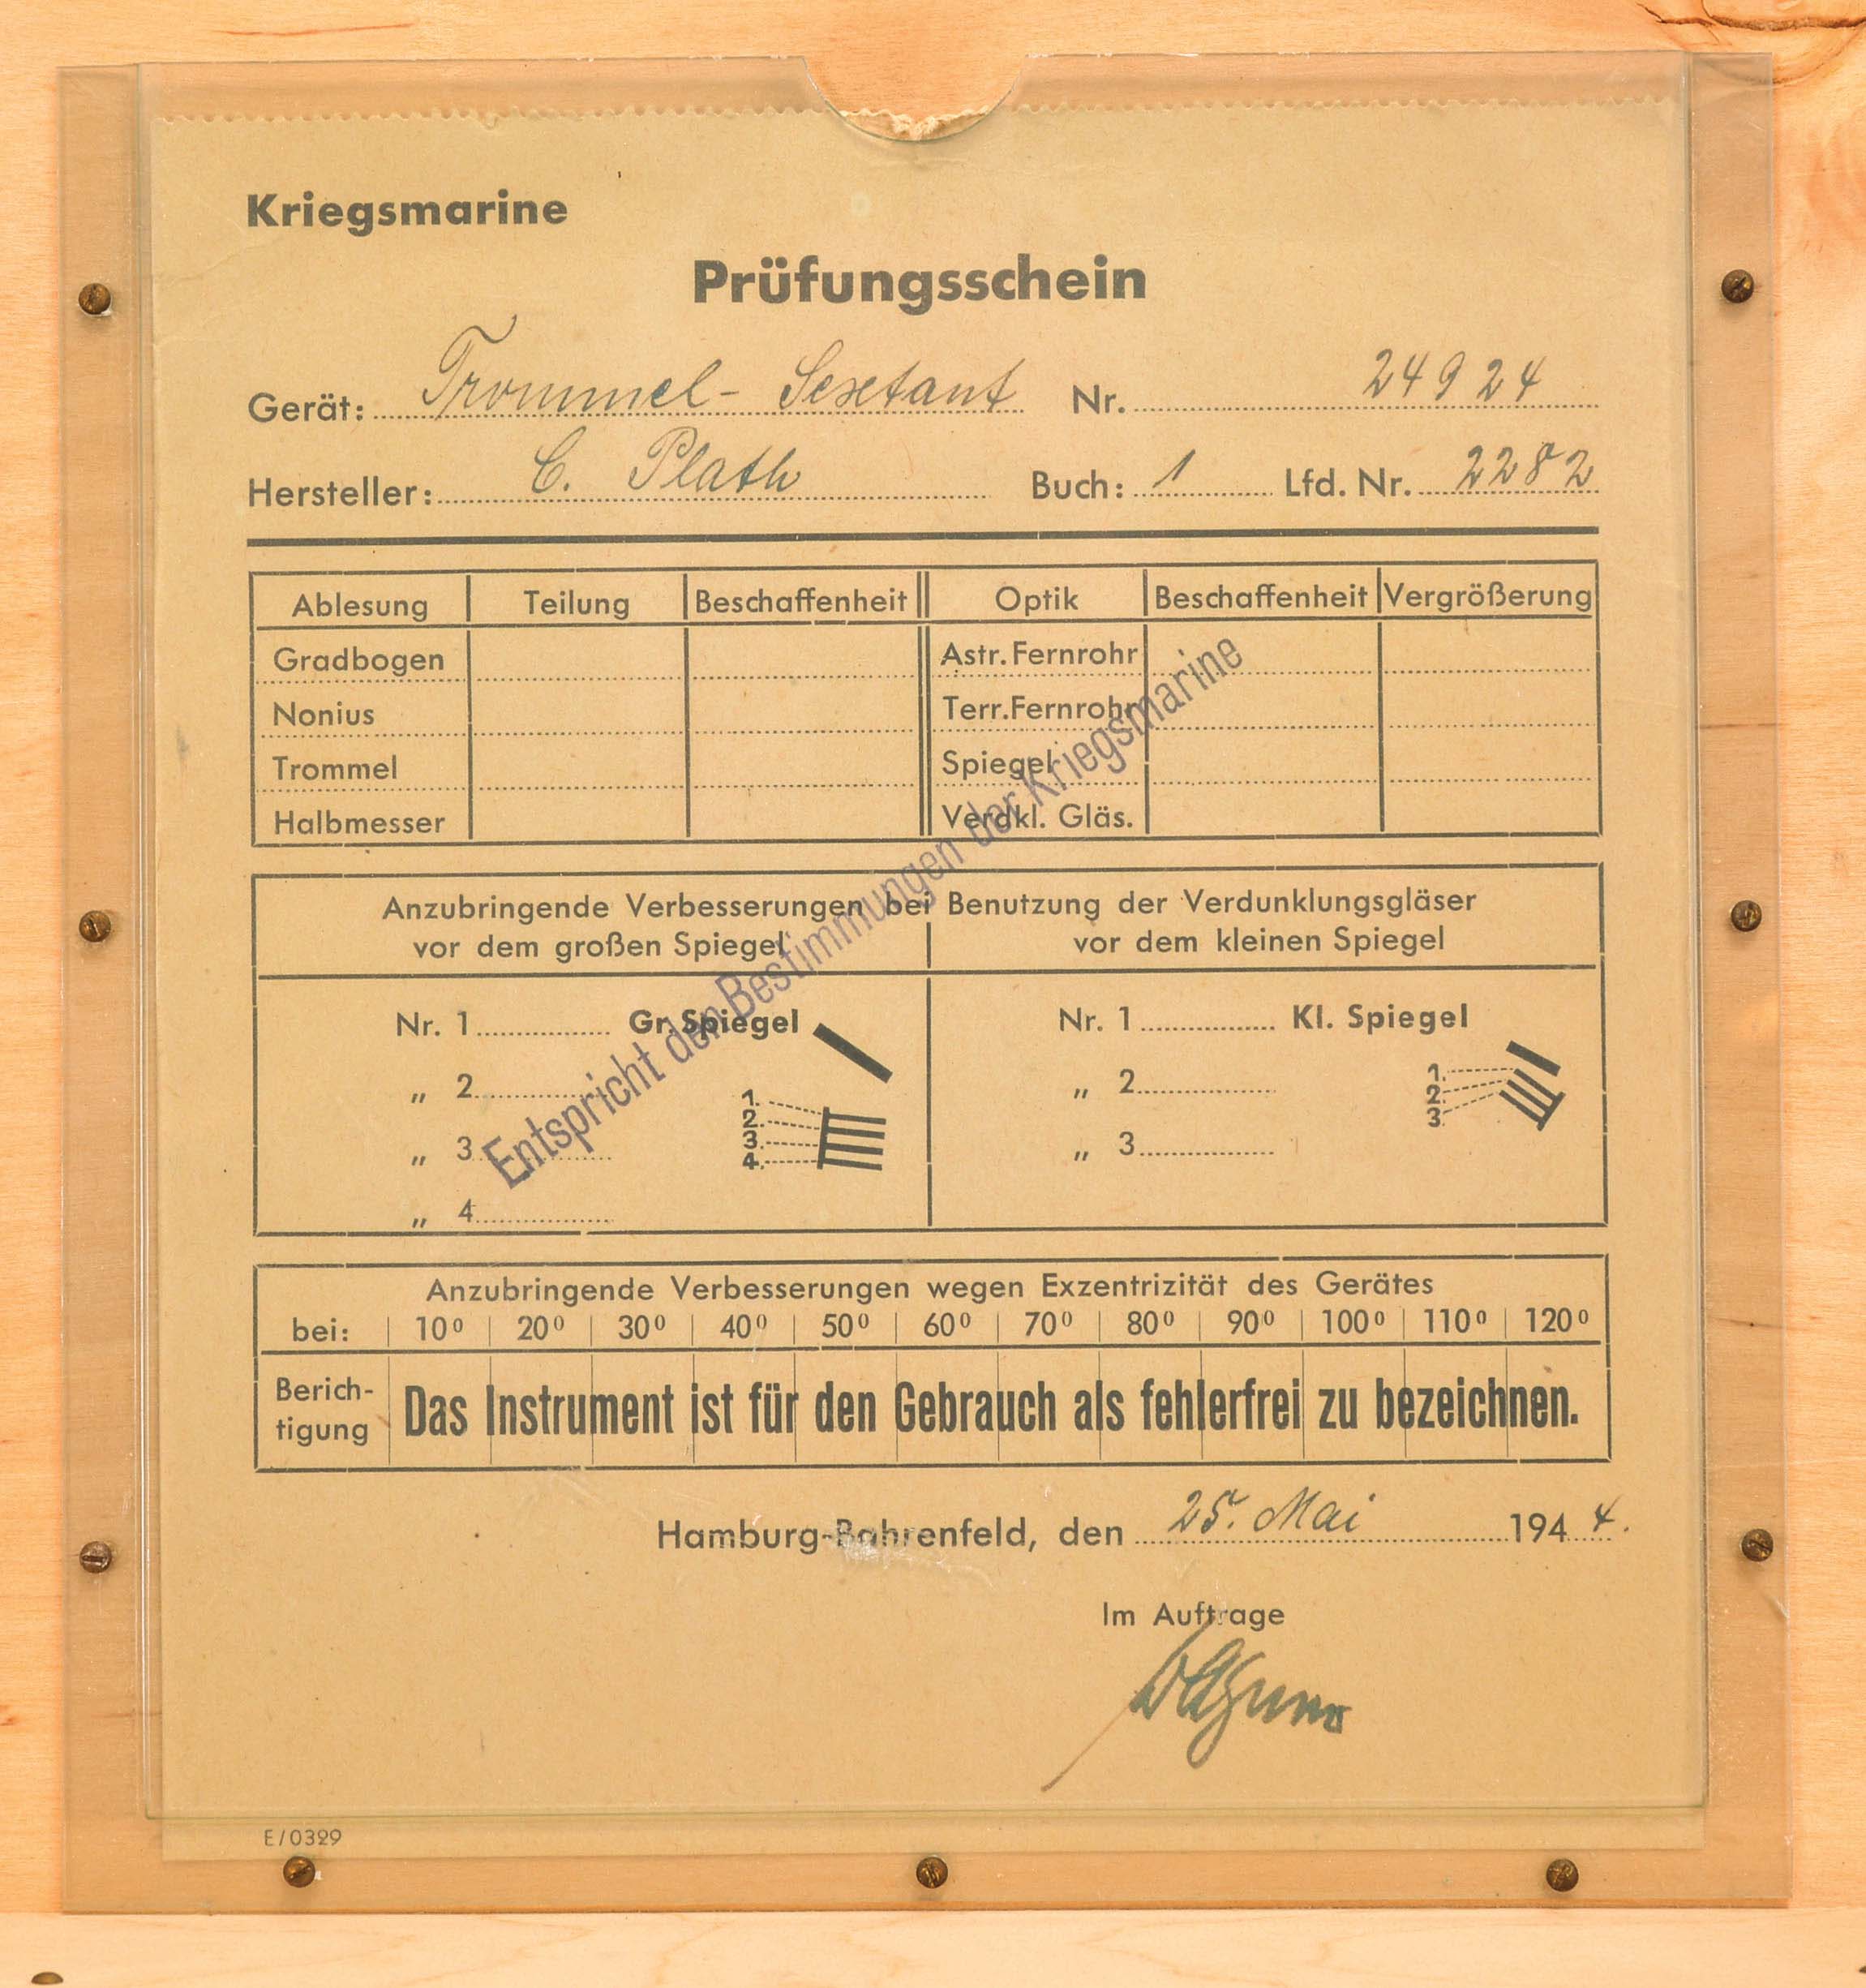 Kriegsmarine
Prüfungsschein
Gerät: Trommel- Sextant Nr. 24924
Hersteller: C. Plath Buch: 1 Lfd. Nr. 2282
Ablesung Teilung Beschaffenheit Optik Beschaffenheit Vergrößerung
Gradbogen Astr. Fernrohr
Nonius Terr. Fernrohr
Trommel Spiegel
Halbmesser Verdkl. Gläs.
Entspricht den Bestimmungen der Kriegsmarine
Anzubringende Verbesserungen bei Benutzung der Verdunklungsgläser
vor dem großen Spiegel vor dem kleinen Spiegel
Nr. 1 Gr. Spiegel Nr. 1 Kl. Spiegel
„ 2 „ 2
„ 3 „ 3
„ 4
1. 2. 3. 4.
1. 2. 3.
Anzubringende Verbesserungen wegen Exzentrizität des Gerätes
bei: 10° 20° 30° 40° 50° 60° 70° 80° 90° 100° 110° 120°
Berich-
tigung
Das Instrument ist für den Gebrauch als fehlerfrei zu bezeichnen.
Hamburg-Bahrenfeld, den 25. Mai 1944.
Im Auftrage
E/0329